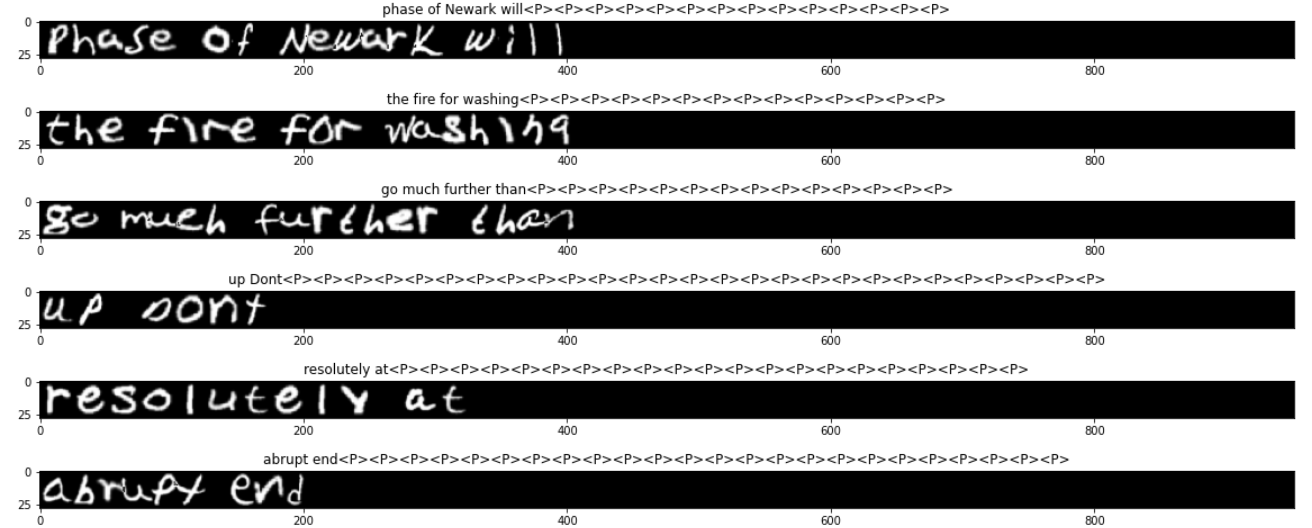 phase of Newark will<P><P><P><P><P><P><P><P><P><P><P><P><P><P>
0
Phase of Newark will
25
0 200 400 600 800
the fire for washing<P><P><P><P><P><P><P><P><P><P><P><P><P><P>
0
the fire for washing
25
0 200 400 600 800
go much further than<P><P><P><P><P><P><P><P><P><P><P><P><P><P>
0
go much further than
25
0 200 400 600 800
up Dont<P><P><P><P><P><P><P><P><P><P><P><P><P><P><P><P><P><P><P><P><P><P><P><P><P><P><P>
0
up Dont
25
0 200 400 600 800
resolutely at<P><P><P><P><P><P><P><P><P><P><P><P><P><P><P><P><P><P><P><P><P>
0
resolutely at
25
0 200 400 600 800
abrupt end<P><P><P><P><P><P><P><P><P><P><P><P><P><P><P><P><P><P><P><P><P><P><P><P>
0
abrupt end
25
0 200 400 600 800